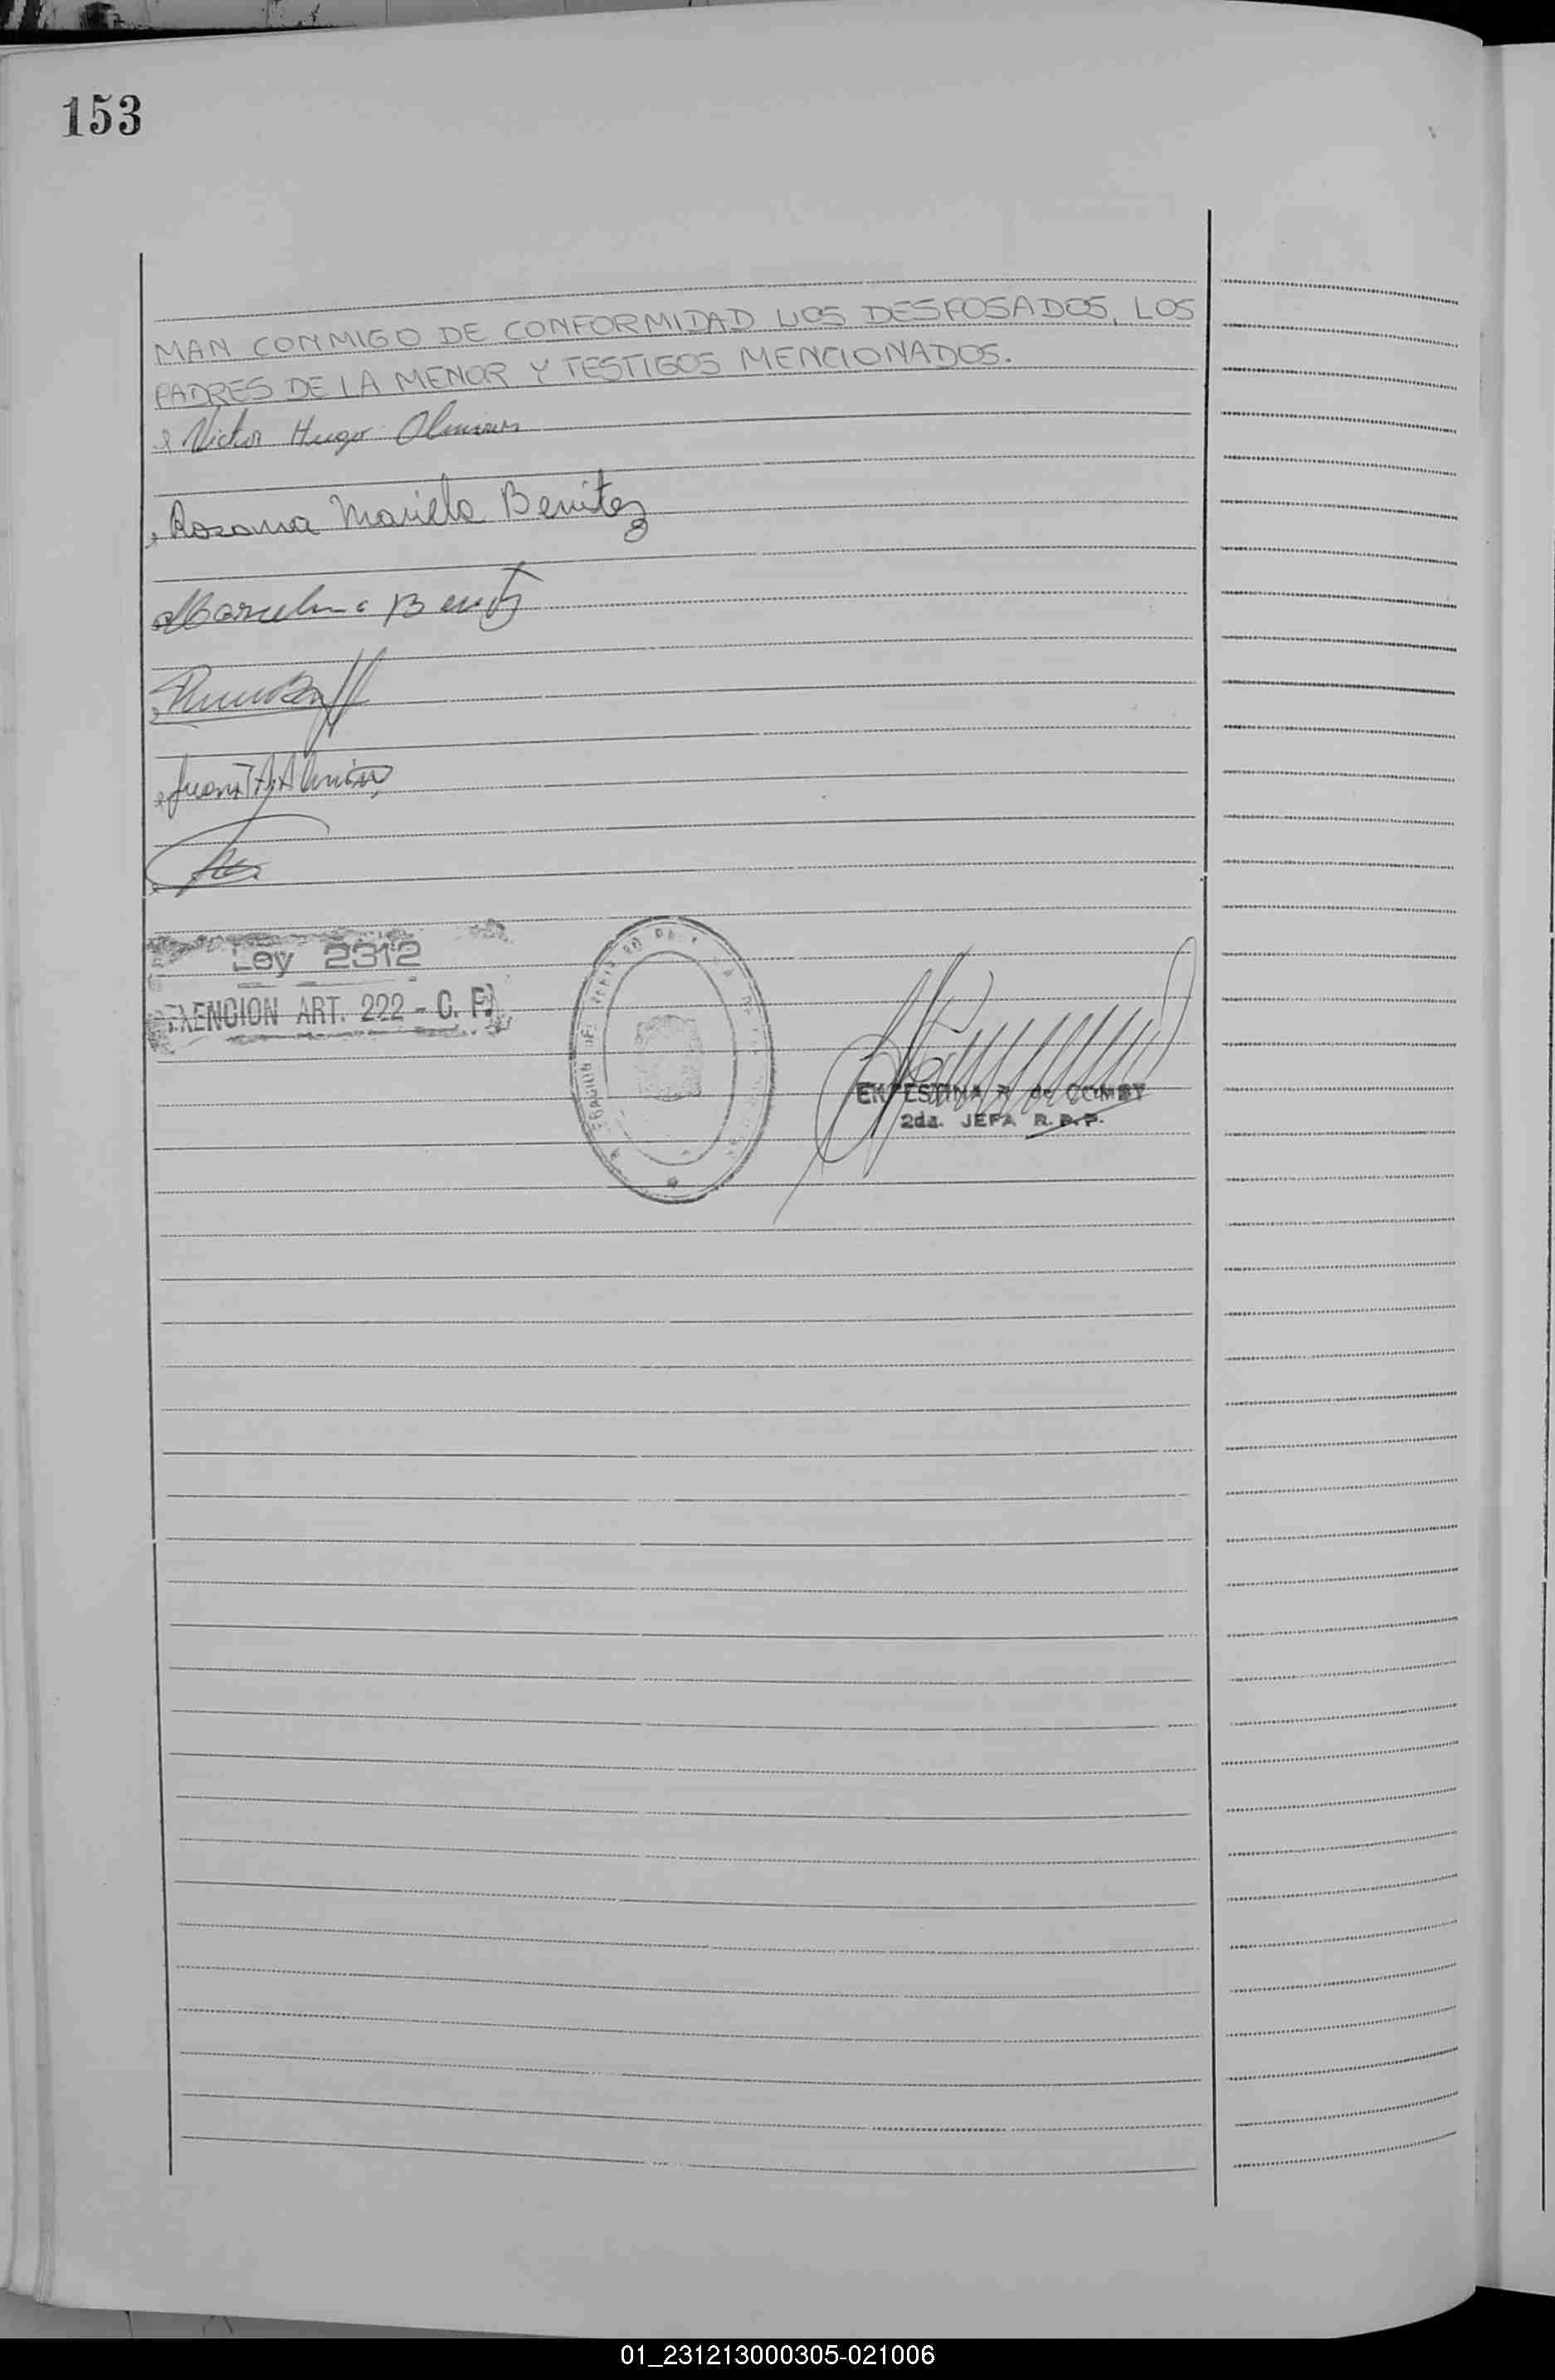 153
MAN CONMIGO DE CONFORMIDAD LOS DESPOSADOS, LOS
PADRES DE LA MENOR Y TESTIGOS MENCIONADOS.
Victor Hugo
Rosana Mariela Benitez
Marcelina Benitez
Juan
Ley 2312
EXENCION ART. 222 - C. F.
ERNESTINA R. de COMBY
2da. JEFA R. P. P.
01_231213000305-021006